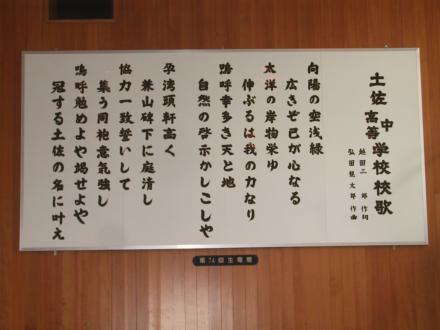 土佐中高等学校校歌
越田三郎作詞
弘田龍太郎作曲
向陽の空浅緑
広きぞ己が心なる
太洋の岸物栄ゆ
伸ぶるは我の力なり
嗚呼幸多き天と地
自然の啓示かしこしや
孕湾頭軒高く
兼山碑下に庭清し
協力一致誓いして
集う同袍意気強し
嗚呼勉めよや竭せよや
冠する土佐の名に叶え
第74回生寄贈